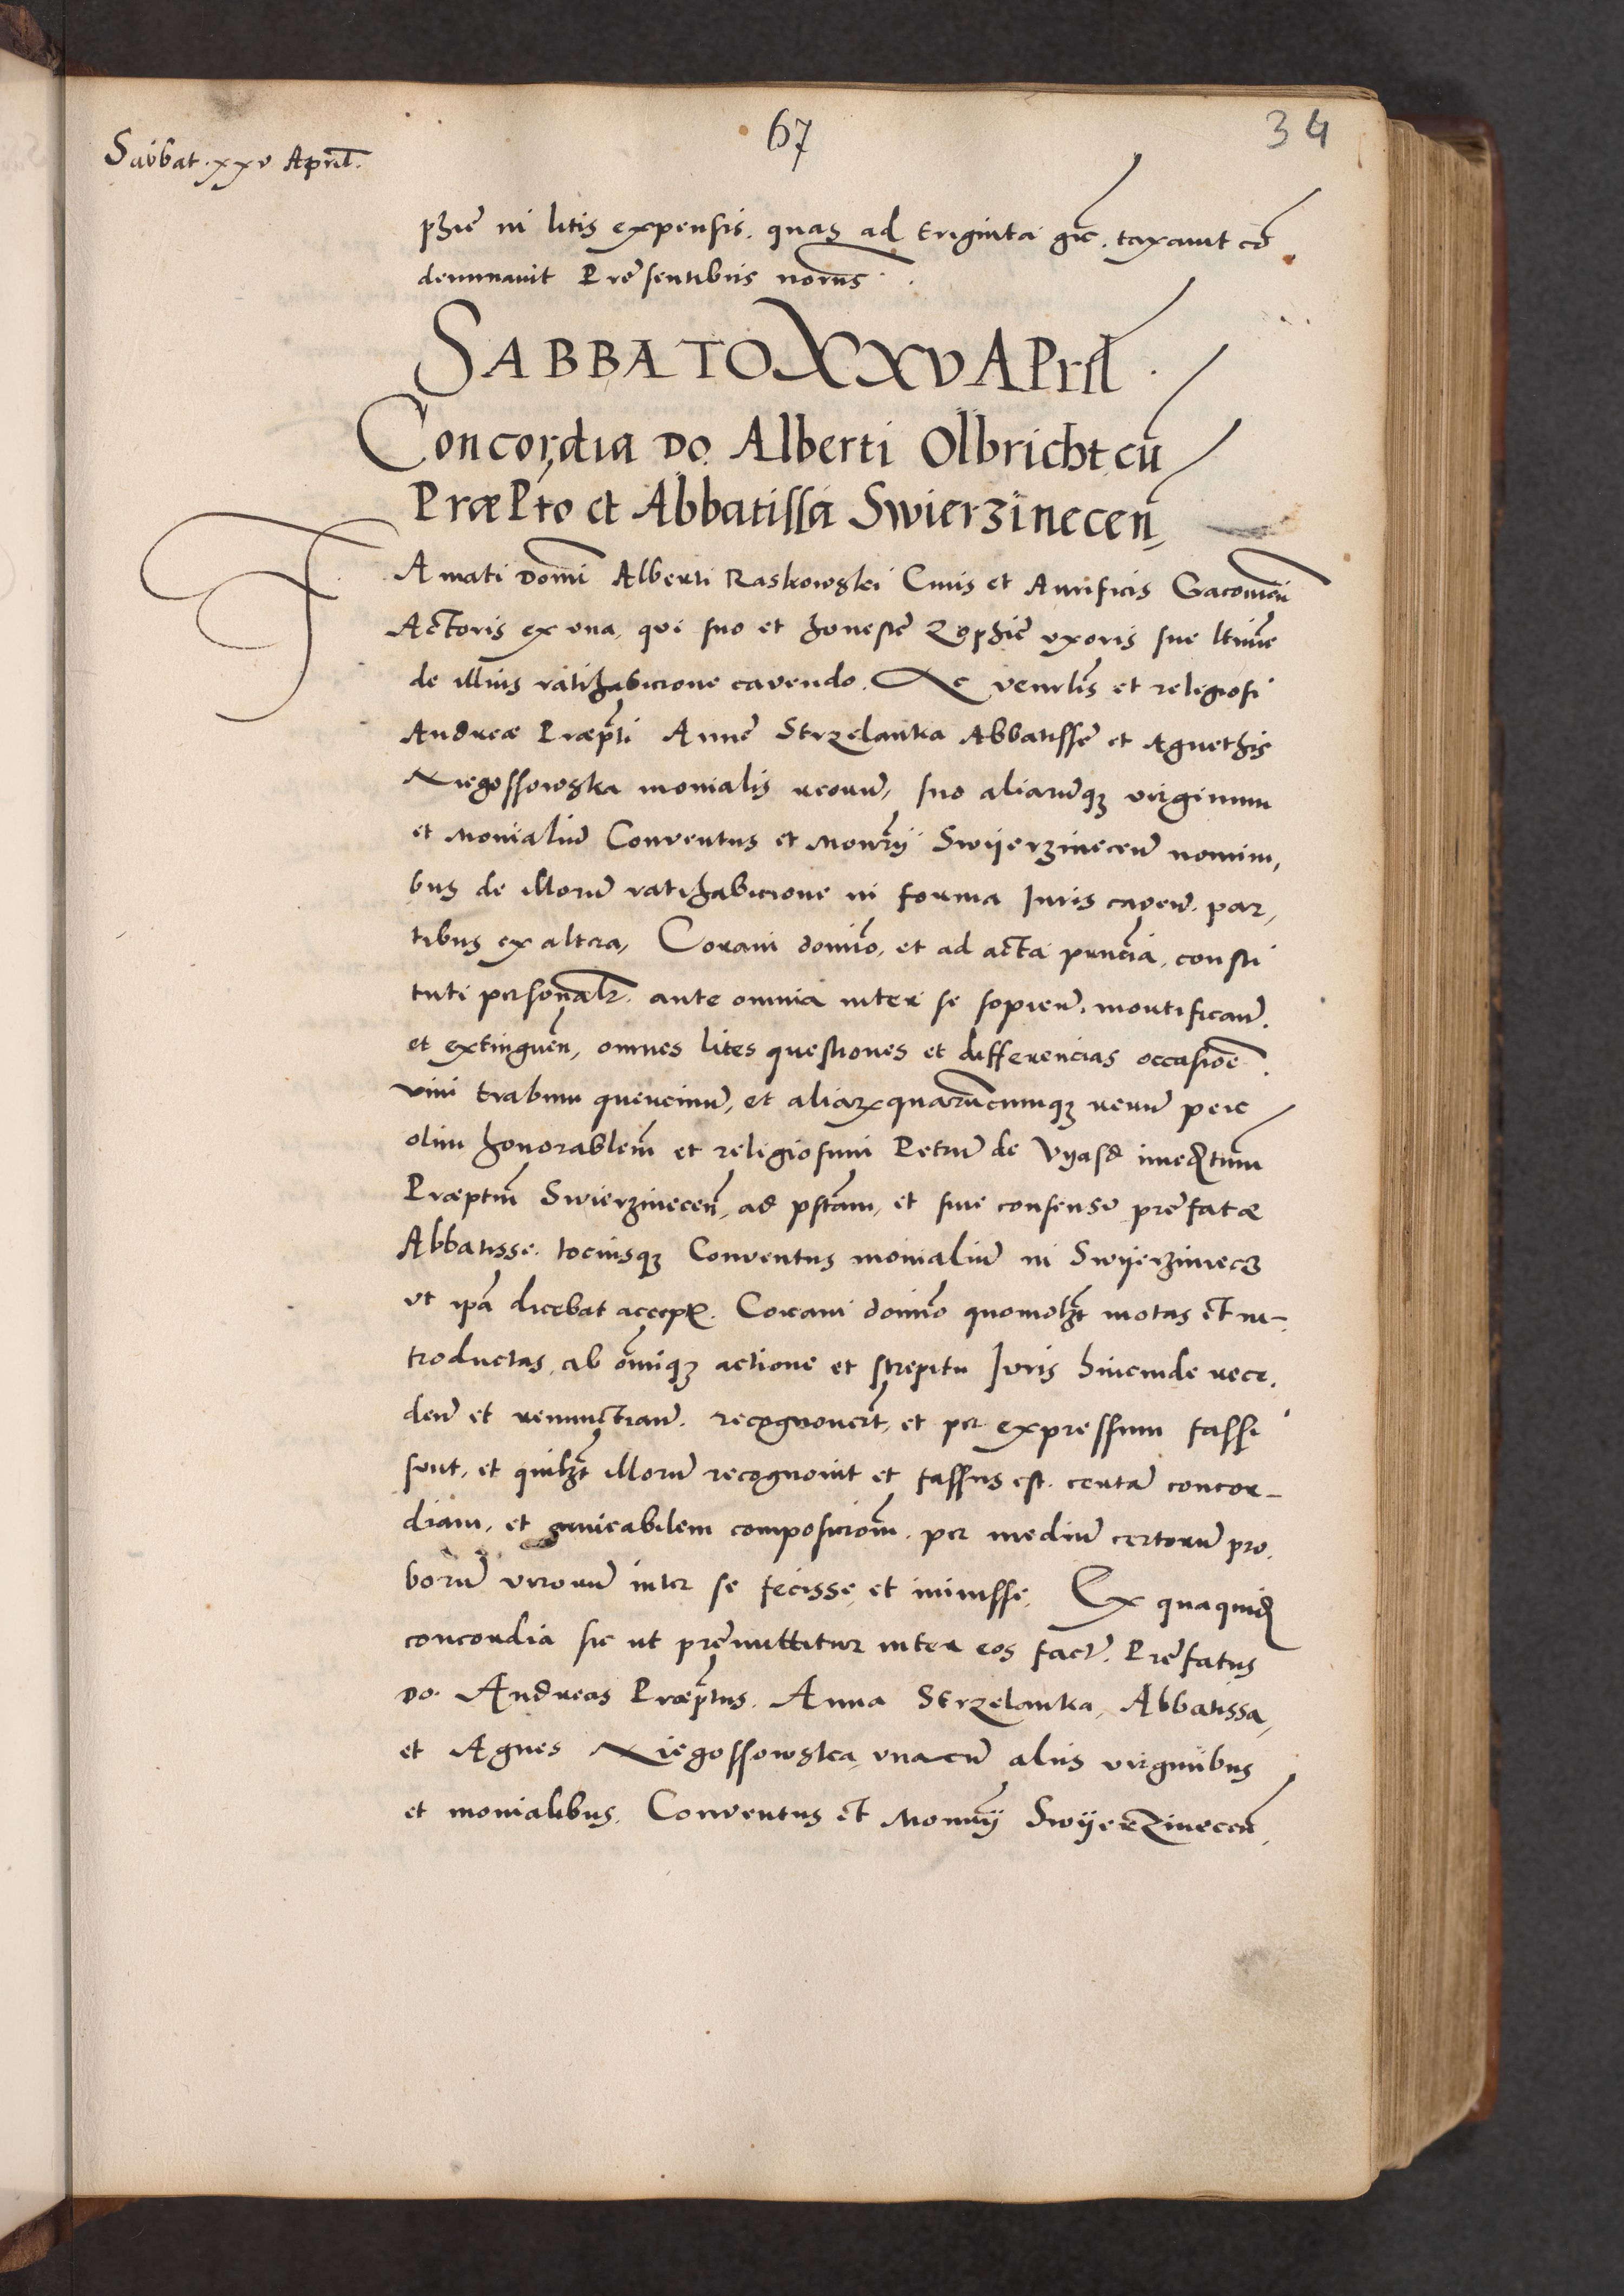 67
34
Sabbat. xxv Aprıl.
phie in litis expensis. quas ad triginta grc. taxavit cō
demnavit Presentibus nor̄us.
SABBATO XXV APril.
Concordia Do. Alberti Olbricht cū
PræPto et Abbatissa Swierzinecen̄
Amati Domi Alberti Raskowski Civis et Aurificis Cracovien̄
Actoris ex una, qui suo et honeste Zophie uxoris sue ltime
de illius ratihabicione cavendo. Ac venrlis et religiosi
Andreæ Præpti Anne Strzelanka Abbatisse et Agnethis
Niegossowska monialis reorum, suo aliarumq3 virginum
et Monialiū Conventus et Monrij Swijerzinecen̄ nomini,
bus de illorum ratihabicione in forma Iuris caven̄. par,
tibus ex altera, Coram domino, et ad acta prncia, consti
tuti personalr. ante omnia inter se sopien̄. mortifican̄.
et extinguen̄, omnes lites questiones et differencias occasiōe.
vini trabium quercinū, et aliarumquarūcumq3 rerum per
olim honorablem et religiosum Petrū de Vyasd imediatum
Præptum Swierzinecen̄, ad pstam, et sine consensu prefatæ
Abbatisse. tociusq3 Conventus monialiū in Swijerzinecz
ut ipā dicebat accept. Coram domino quomolz̄t motas et in-
troductas, ab omiq3 actione et strepitu Iuris hincinde rece,
den̄ et renunctian̄. recognoverūt, et per expressum fassi
sunt, et quilz̄t illorū recognovit et fassus est. certā concor-
diam, et amicabilem composicionem. per mediū certorū pro,
borū virorū inter se fecisse, et inivisse, Ex quaquid̄
concordia sic ut premittitur inter eos fact. Prefatus
Do. Andreas Præptus. Anna Strzelanka, Abbatissa,
et Agnes Niegossowska, unacū aliis virginibus
et monialibus. Conventus et Monrij Swijerzinecen̄,